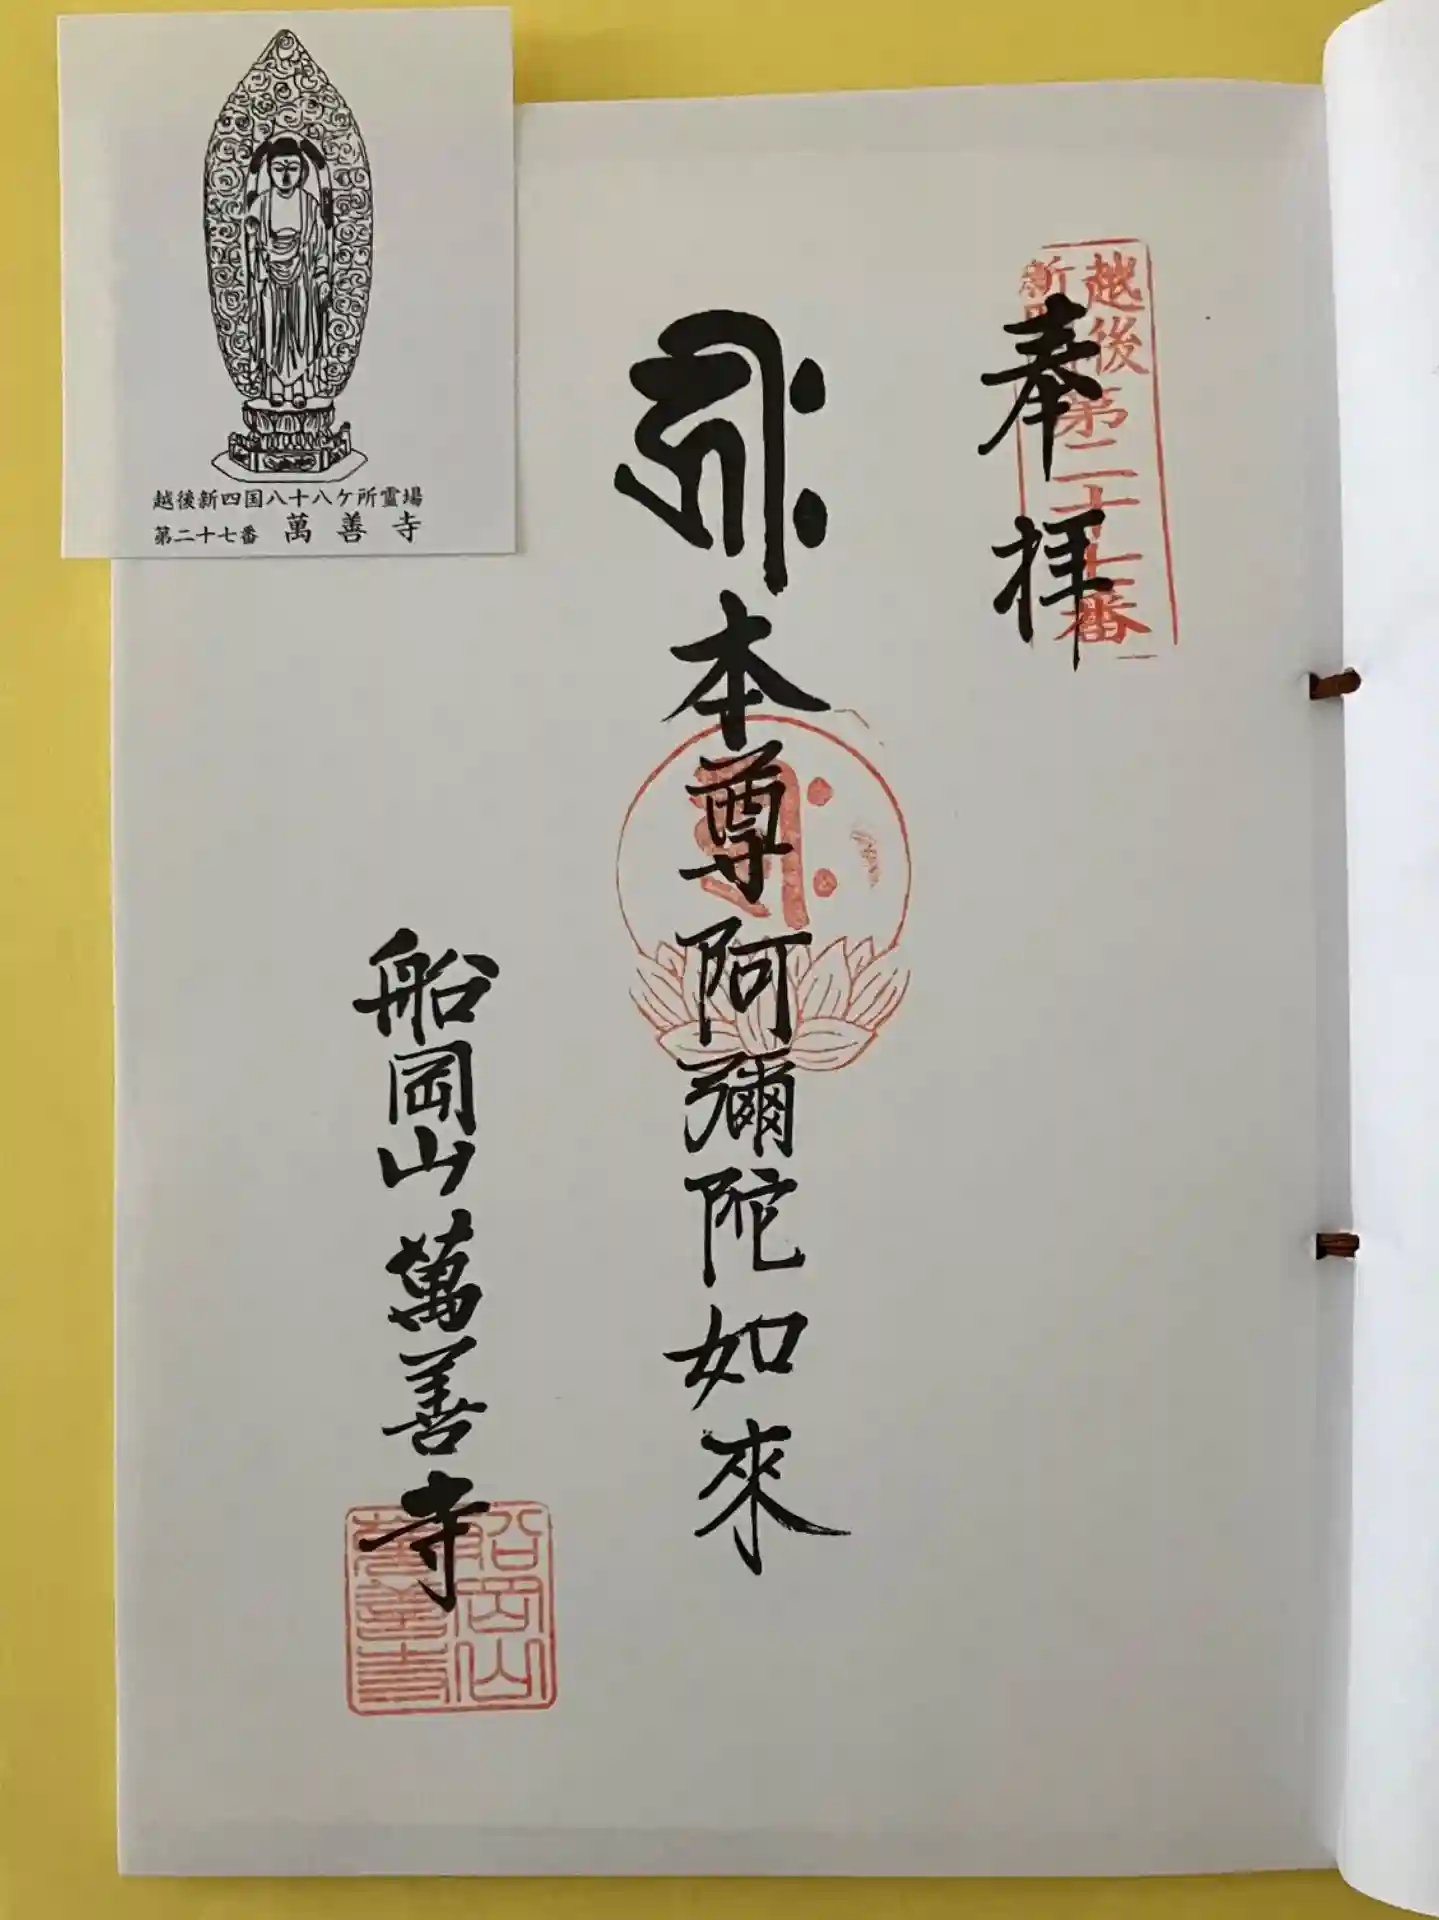 越後新四国八十八ケ所霊場
第二十七番 萬善寺
越後
新
第二十七番
奉拝
本尊阿彌陀如來
船岡山 萬善寺
船岡山
萬善寺